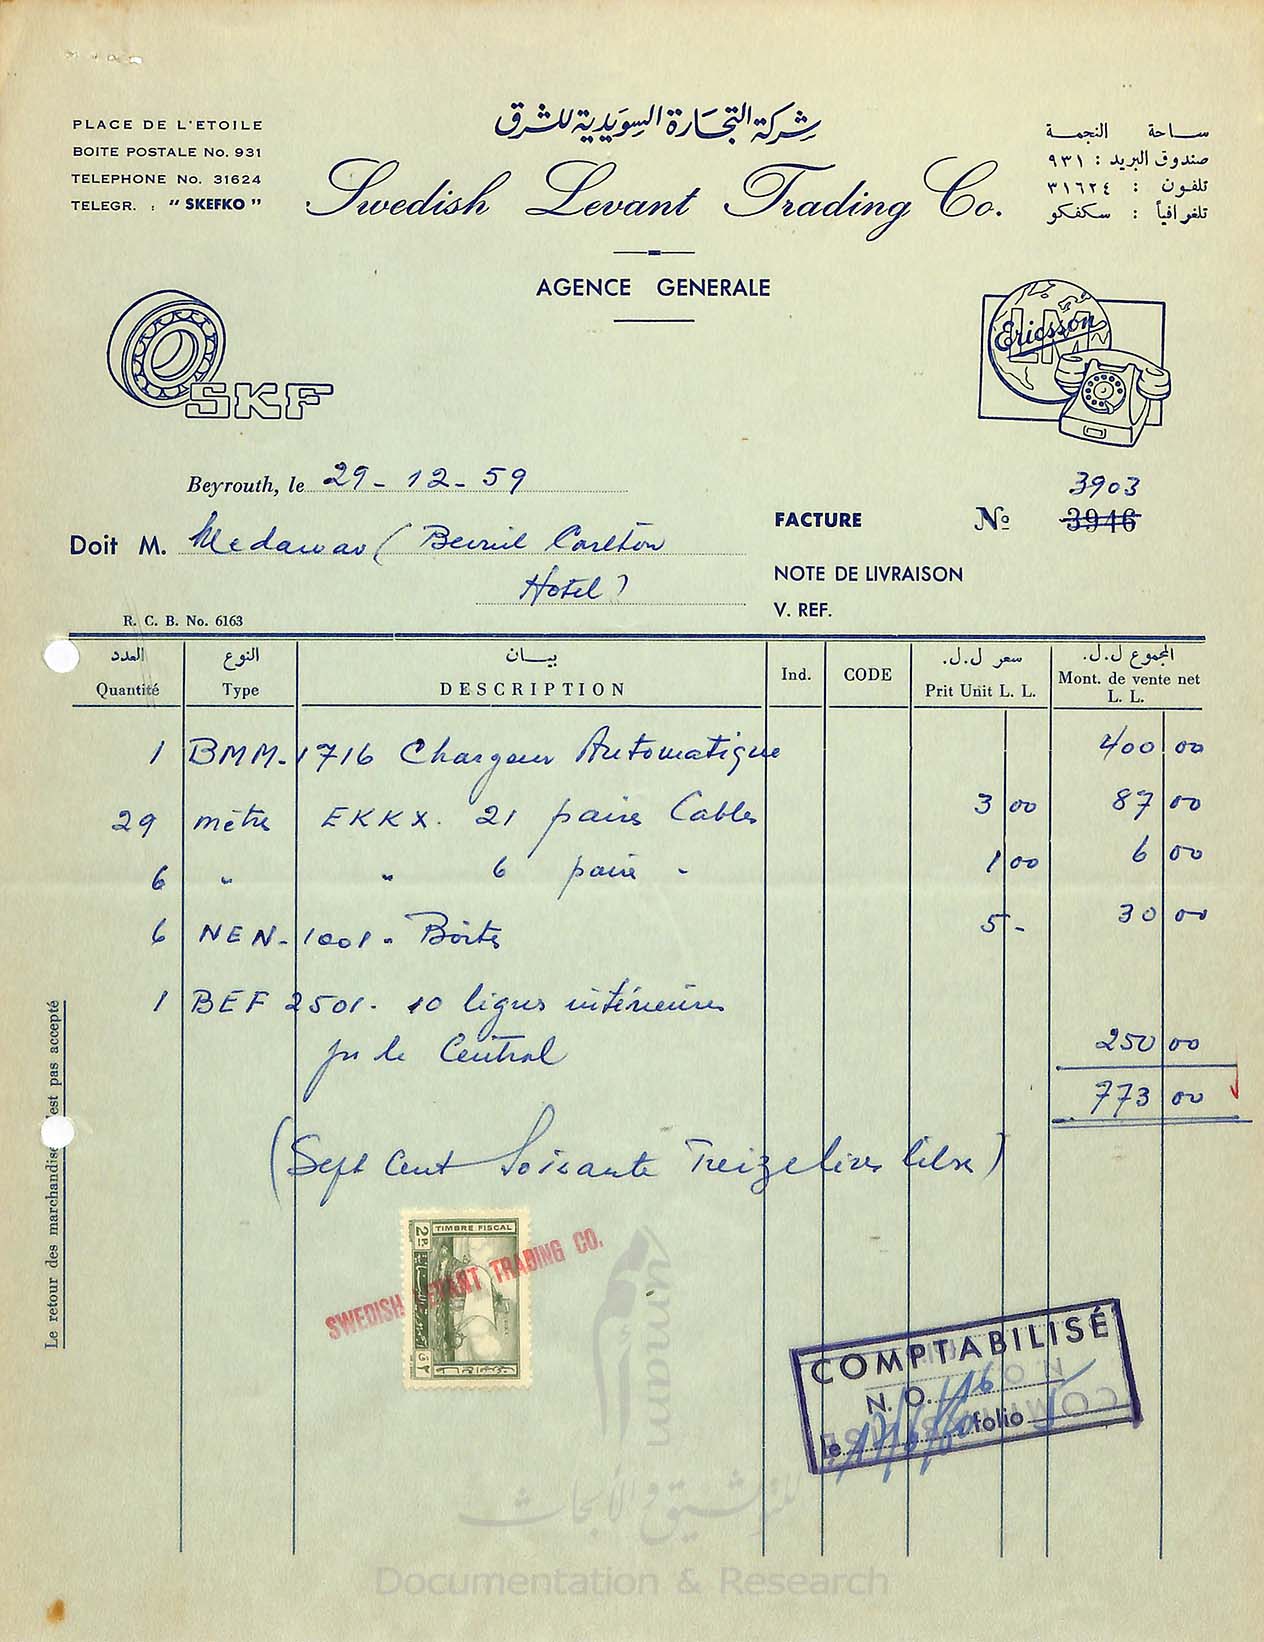 PLACE DE L'ETOILE
BOITE POSTALE No. 931
TELEPHONE No. 31624
TELEGR. : "SKEFKO"
شركة التجارة السويدية للشرق
Swedish Levant Trading Co.
ساحة النجمة
صندوق البريد : ٩٣١
تلفون : ٣١٦٢٤
تلغرافياً : سكفكو
AGENCE GENERALE
SKF
LM Ericsson
Beyrouth, le 29 - 12 - 59
Doit M. Medawar (Beirut Carlton
Hotel)
FACTURE No 3946
3903
NOTE DE LIVRAISON
V. REF.
R. C. B. No. 6163
العدد النوع بيان سعر ل.ل. المجموع ل.ل.
Quantité Type DESCRIPTION Ind. CODE Prit Unit L. L. Mont. de vente net L. L.
1 BMM-1716 Chargeur Automatique 400 00
29 mètres EKKX. 21 paires Cables 3 00 87 00
6 " " 6 paire " 1 00 6 00
6 NEN-1001- Boîtes 5 - 30 00
1 BEF 2501- 10 lignes intérieures
pr le Central 250 00
773 00
(Sept Cent Soixante Treize lires lib.)
Le retour des marchandise est pas accepté
TIMBRE FISCAL
2 P.
SWEDISH LEVANT TRADING CO.
COMPTABILISÉ
N. O. 16
le folio
umam
للتوثيق والأبحاث
Documentation & Research